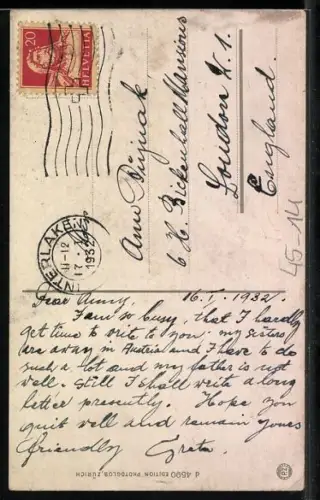 20
HELVETIA
INTERLAKEN
11-12
17
1932
Ann
6 H. Bickenhall Mansions
London W. 1.
England
45-14
16. I. 1932.
Dear Anny,
I am so busy, that I hardly
get time to write to you. my sisters
are away in Austria and I have to do
such a lot and my father is not
well. Still I shall write a long
letter presently. Hope you
quit well and remain yours
friendly Greta.
d 4690 EDITION PHOTOGLOB ZÜRICH